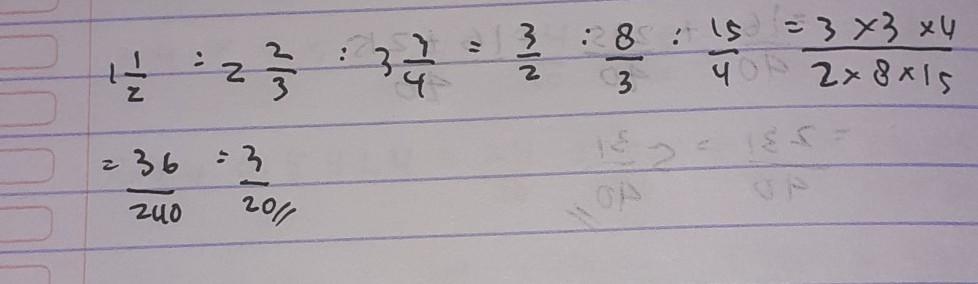 1 1/2 : 2 2/3 : 3 3/4 = 3/2 : 8/3 : 15/4 = 3 × 3 × 4 / 2 × 8 × 15
= 36/240 = 3/20 //